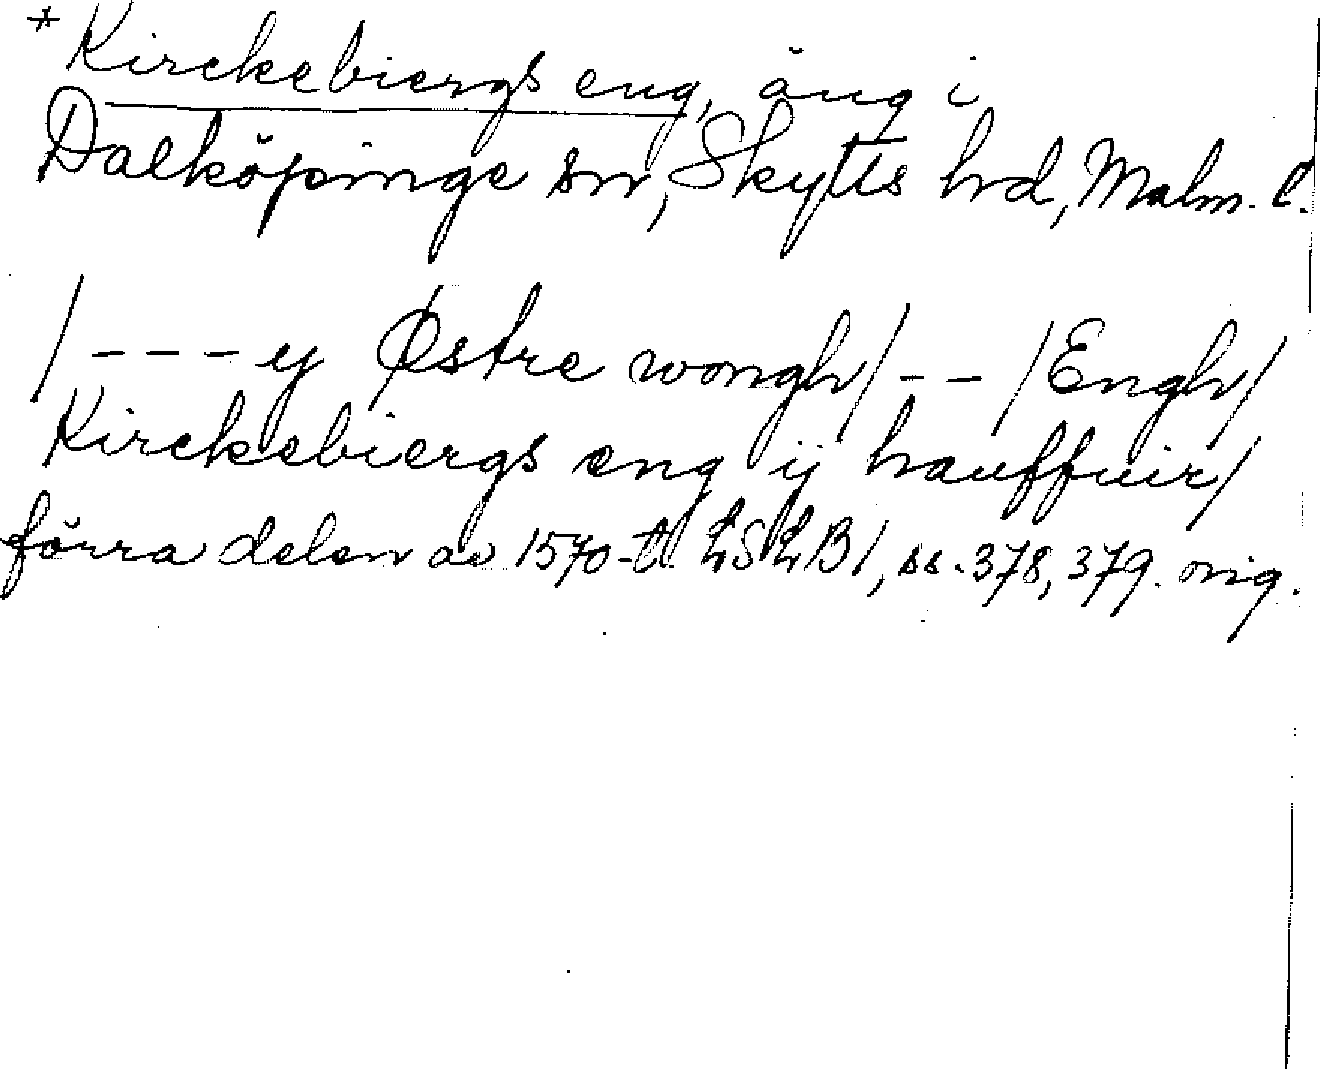 * Kirckebiergs eng, äng i
Dalköpinge sn, Skytts hd, Malm. l.
/---y Østre wongh/--/Engh/
Kirckebiergs eng ij hauffuir/
förra delen av 1570-t. LSLB1, ss. 378, 379. orig.